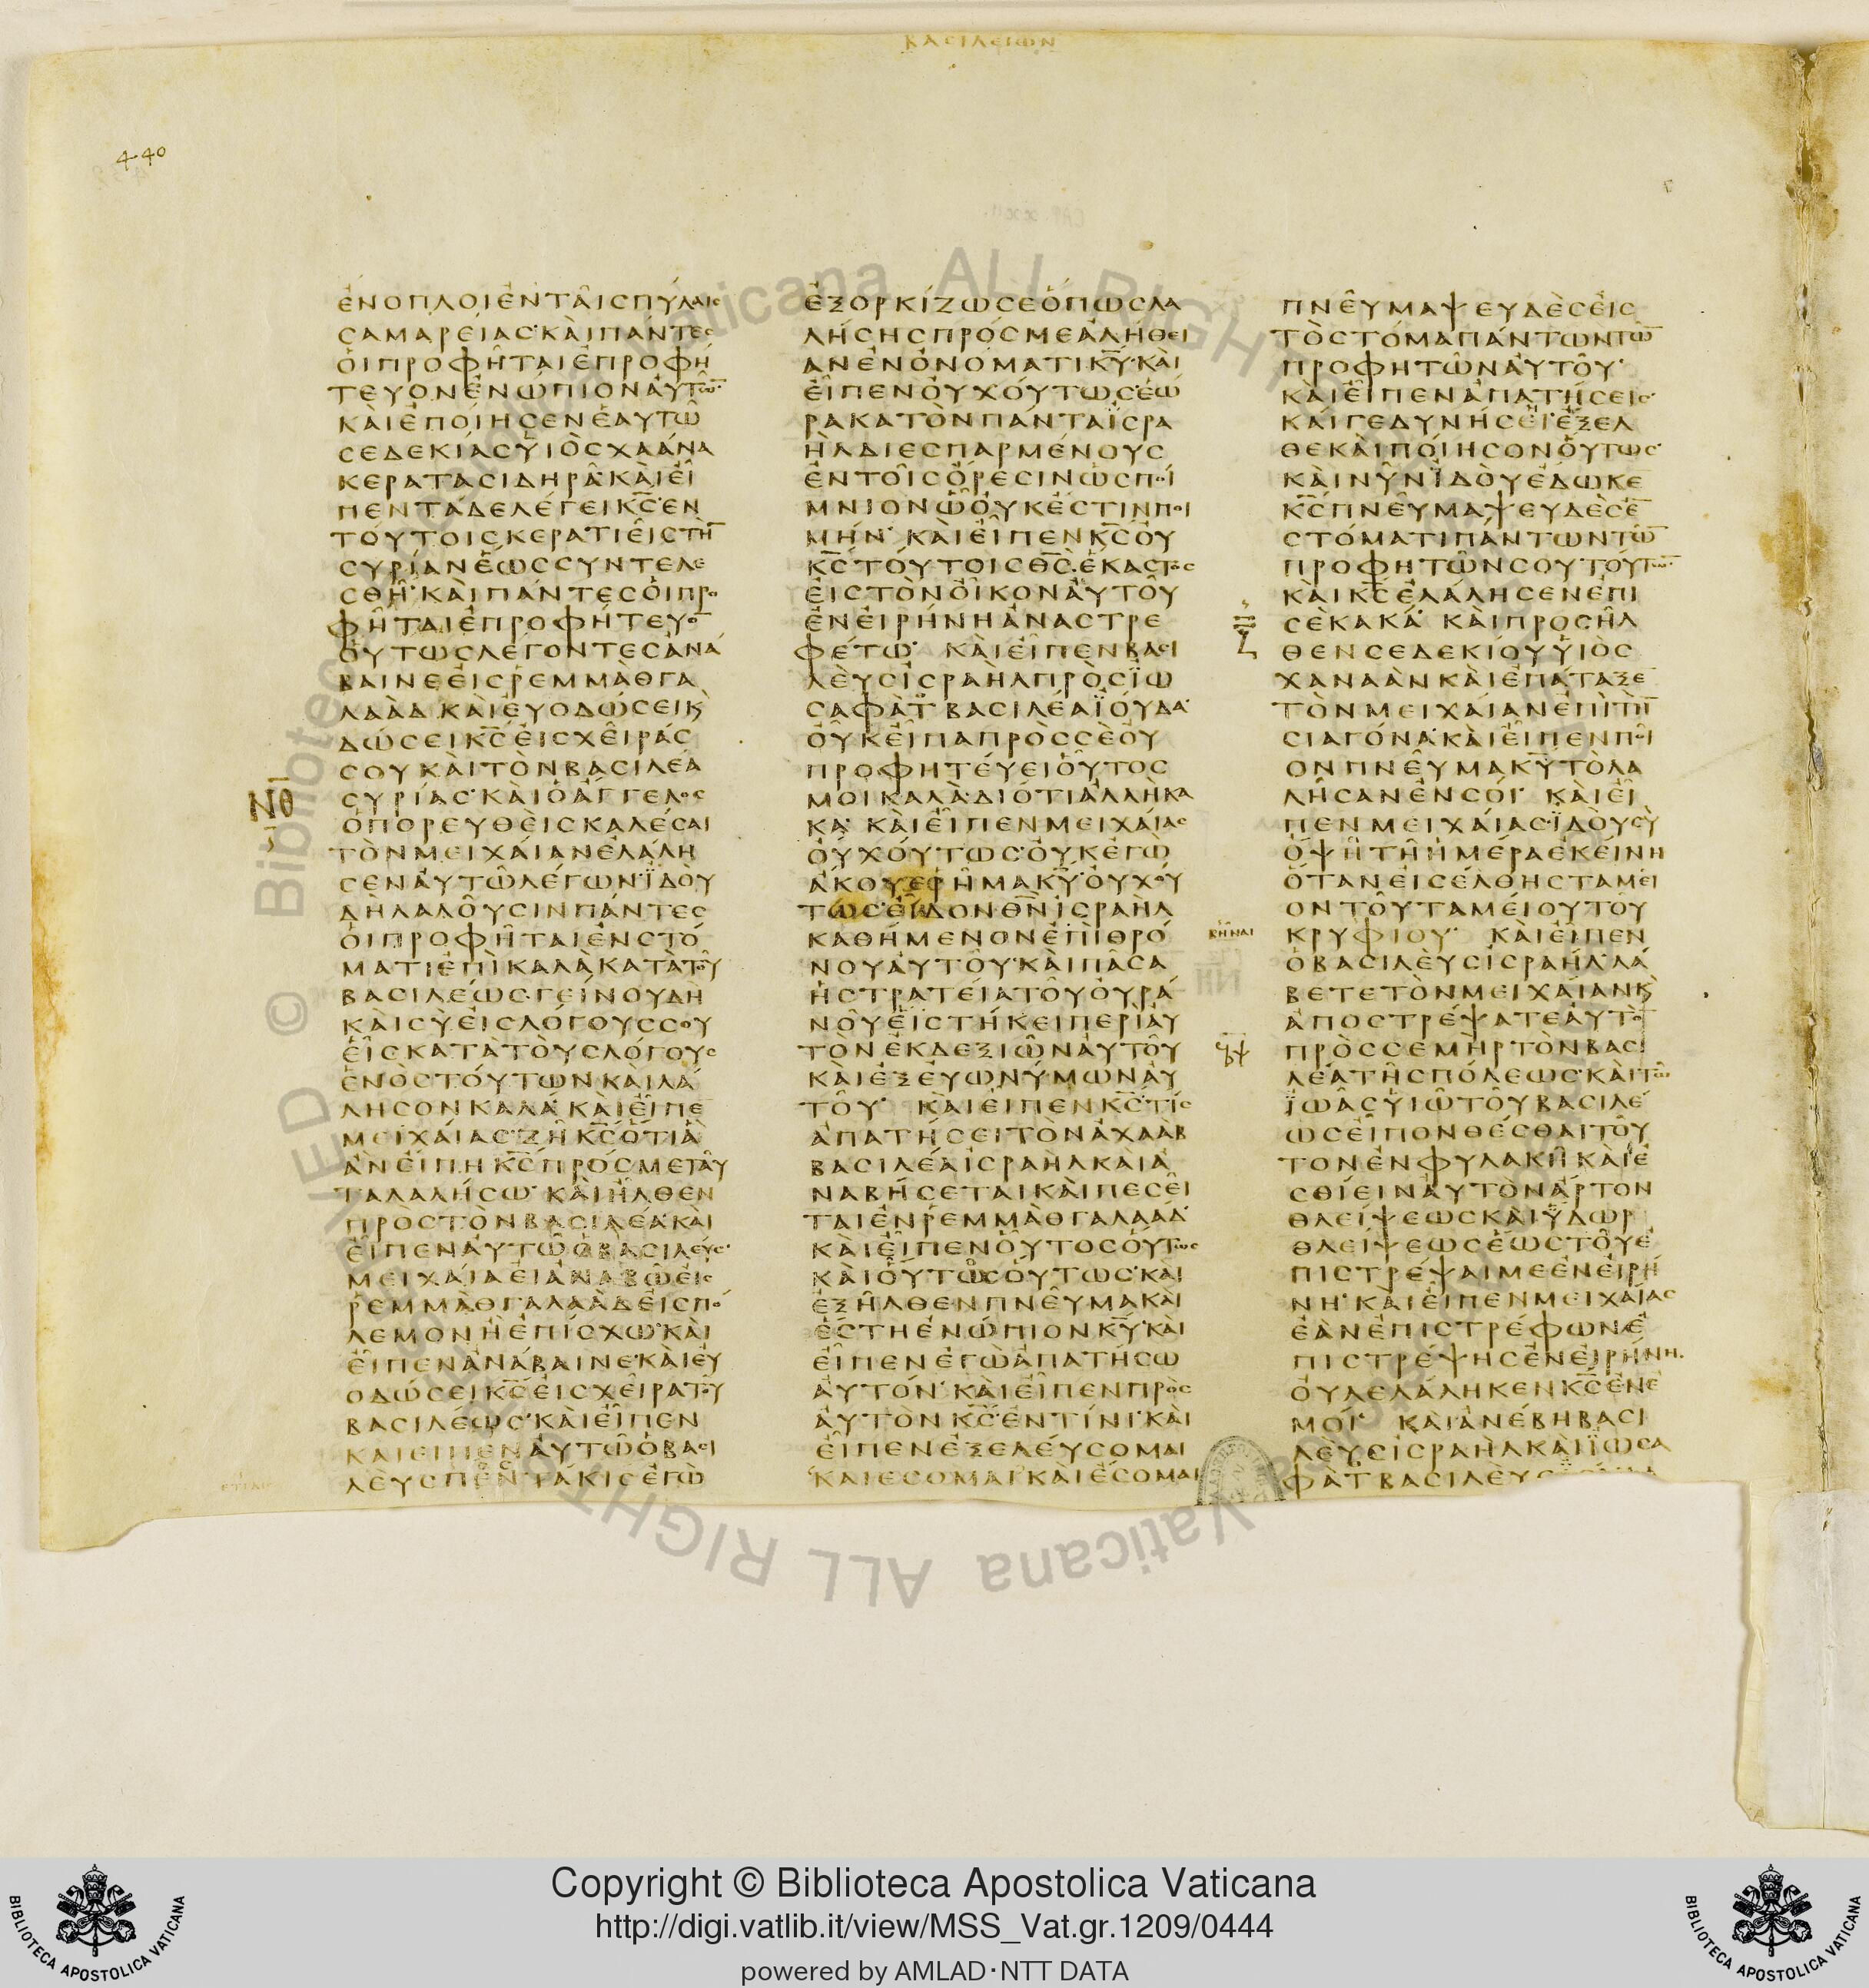 ΒΑΣΙΛΕΙΩΝ
440
ἐνοπλοι ἐν ταῖς πύλαις
σαμαρείας· καὶ πάντες
οἱ προφῆται ἐπροφή
τευον ἐνώπιον αὐτω̅·
καὶ ἐποίησεν ἑαυτῶ
σεδεκίας ϋἱὸς χαάνα
κέρατα σιδηρᾶ· καὶ εἶ
πεν τάδε λέγει κ̅ς̅· ἐν
τούτοις κερατιεῖς τὴ̅
συρίαν ἕως συντελε
σθῆ· καὶ πάντες οἱ προ
φῆται ἐπροφήτευο̅
οὕτως λέγοντες ἀνά
βαινε εἰς ῥεμμὰθ γα
λαὰδ καὶ εὐοδώσει κ̀
δώσει κ̅ς̅ εἰς χεῖράς
σου καὶ τὸν βασιλέα
συρίας· καὶ ὁ ἄγγελος
ὁ πορευθεὶς καλέσαι
τὸν μειχαίαν ἐλάλη
σεν αὐτῶ λέγων· ϊδοὺ
δὴ λαλοῦσιν πάντες
οἱ προφῆται ἐν στό
ματι ἑπὶ καλὰ κατὰ τοῦ
βασιλέως· γείνου δὴ
καὶ σὺ εἰς λόγους σου
εἷς κατὰ τοὺς λόγους
ἑνὸς τούτων καὶ λά
λησον καλά· καὶ εἶπε
μειχαίας· ζῆ κ̅ς̅ ὅτι ἃ
ἂν εἴπη κ̅ς̅ πρός με ταῦ
τα λαλήσω· καὶ ἦλθεν
πρὸς τὸν βασιλέα· καὶ
εἶπεν αὐτῶ ὁ βασιλεύς·
μειχαία εἰ ἀναβῶ εἰς
ῥεμμὰθ γαλαὰδ εἰς πό
λεμον ἢ ἐπίσχω· καὶ
εἶπεν ἀνάβαινε· καὶ εὐ
οδώσει κ̅ς̅ εἰς χεῖρα τοῦ
βασιλέως· καὶ εἶπεν
και ειπεν αὐτῶ ὁ βασι
λεὺς πεντάκις ἐγὼ
ἐξορκίζω σε ὅπως λα
λήσης πρός με ἀλήθει
αν ἐν ὀνόματι κ̅υ̅· καὶ
εἶπεν οὐχ οὕτως· ἑώ
ρακα τὸν πάντα ϊσρα
ὴλ διεσπαρμένους
ἐν τοῖς ὄρεσιν ὡς ποί
μνιον ὧ οὐκ ἔστιν ποι
μήν· καὶ εἶπεν κ̅ς̅ οὐ
κ̅ς̅ τούτοις θ̅ς̅· ἕκαστος
εἰς τὸν οἶκον αὐτοῦ
ἐν εἰρήνη ἀναστρε
φέτω· καὶ εἶπεν βασι
λεὺς ἰσραὴλ πρὸς ϊω
σαφὰτ βασιλέα ϊούδα·
οὐκ εἶπα πρὸς σὲ οὐ
προφητεύει οὗτός
μοι καλά· διότι ἀλλ᾽ ἢ κα
κά· καὶ εἶπεν μειχαίας
οὐχ οὕτως· οὐκ ἐγὼ
ἄκουε ῥῆμα κ̅υ̅· οὐχ οὕ
τως· εἶδον θ̅ν̅ ἰσραὴλ
καθήμενον ἐπὶ θρό
νου αὐτοῦ· καὶ πᾶσα
ἡ στρατεία τοῦ οὐρα
νοῦ εἱστήκει περὶ αὐ
τὸν ἐκ δεξιῶν αὐτοῦ
καὶ ἐξ εὐωνύμων αὐ
τοῦ· καὶ εἶπεν κ̅ς̅· τίς
ἀπατήσει τὸν ἀχαὰβ
βασιλέα ἰσραὴλ καὶ ἀ
ναβήσεται καὶ πεσεῖ
ται ἐν ῥεμμὰθ γαλαάδ·
καὶ εἶπεν οὗτος οὕτως
καὶ οὕτως οὕτως· καὶ
ἐξῆλθεν πνεῦμα καὶ
ἔστη ἐνώπιον κ̅υ̅· καὶ
εἶπεν ἐγὼ ἀπατήσω
αὐτόν· καὶ εἶπεν πρὸς
αὐτὸν κ̅ς̅· ἐν τίνι· καὶ
εἶπεν ἐξελεύσομαι
και εσομαι καὶ ἔσομαι
πνεῦμα ψευδὲς εἰς
τὸ στόμα πάντων τω̅
προφητῶν αὐτοῦ·
καὶ εἶπεν ἀπατήσεις·
καί γε δυνήσει· ἔξελ
θε καὶ ποίησον οὕτως·
καὶ νῦν ϊδοὺ ἔδωκε
κ̅ς̅ πνεῦμα ψευδὲς ἐ̅
στόματι πάντων τω̅
προφητῶν σου τούτω̅·
καὶ κ̅ς̅ ἐλάλησεν ἐπὶ
σὲ κακά· καὶ προσῆλ
θεν σεδεκίου ϋἱὸς
χαναὰν καὶ ἐπάταξε
τὸν μειχαίαν ἐπὶ τὴ̅
σιαγόνα· καὶ εἶπεν ποῖ
ον πνεῦμα κ̅υ̅ τὸ λα
λῆσαν ἐν σοί· καὶ εἶ
πεν μειχαίας· ϊδοὺ σὺ
ὄψη τῆ ἡμέρα ἐκείνη
ὅταν εἰσέλθης ταμεῖ
ον τοῦ ταμείου τοῦ
κρυφιου· καὶ εἶπεν
ὁ βασιλεὺς ἰσραήλ· λά
βετε τὸν μειχαίαν κ̀
ἀποστρέψατε αὐτὸ̅
πρὸς σεμὴρ τὸν βασι
λέα τῆς πόλεως· καὶ τῶ
ϊωὰς ϋἱῶ τοῦ βασιλέ
ως εἰπον θέσθαι τοῦ
τον ἐν φυλακῆ καὶ ἐ
σθίειν αὐτὸν ἄρτον
θλείψεως καὶ ὕδωρ
θλείψεως ἕως τοῦ ἐ
πιστρέψαι με ἐν εἰρή
νη· καὶ εἶπεν μειχαίας
ἐὰν ἐπιστρέφων ἐ
πιστρέψης ἐν εἰρήνη.
οὐ λελάληκεν κ̅ς̅ ἐν ἐ
μοί· καὶ ἀνέβη βασι
λεὺς ἰσραὴλ καὶ ϊωσα
φὰτ βασιλεὺς
ΝΘ
κῆναι
Copyright © Biblioteca Apostolica Vaticana
http://digi.vatlib.it/view/MSS_Vat.gr.1209/0444
powered by AMLAD·NTT DATA
BIBLIOTECA APOSTOLICA VATICANA
BIBLIOTECA APOSTOLICA VATICANA